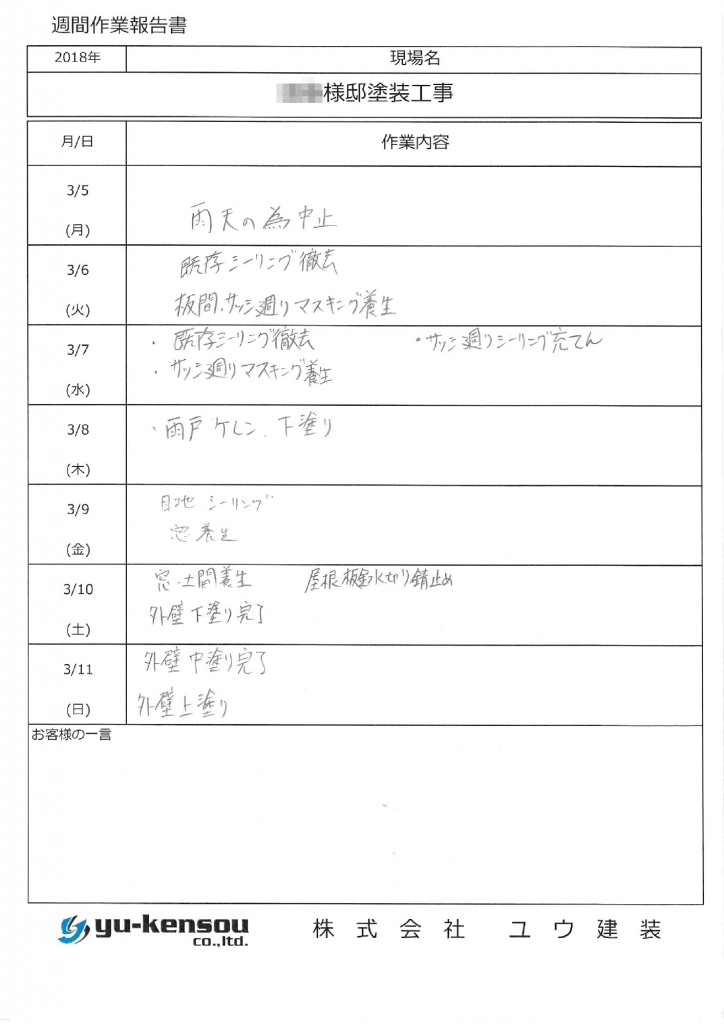 週間作業報告書
2018年 現場名
様邸塗装工事
月/日 作業内容
3/5
(月)
雨天の為中止
3/6
(火)
既存シーリング徹去
板間、サッシ廻りマスキング養生
3/7
(水)
・既存シーリング徹去 ・サッシ廻りシーリング充てん
・サッシ廻りマスキング養生
3/8
(木)
・雨戸ケレン、下塗り
3/9
(金)
目地シーリング
窓養生
3/10
(土)
窓・土間養生 屋根板金水切り錆止め
外壁下塗り完了
3/11
(日)
外壁中塗り完了
外壁上塗り
お客様の一言
yu-kensou co.,ltd. 株式会社 ユウ建装